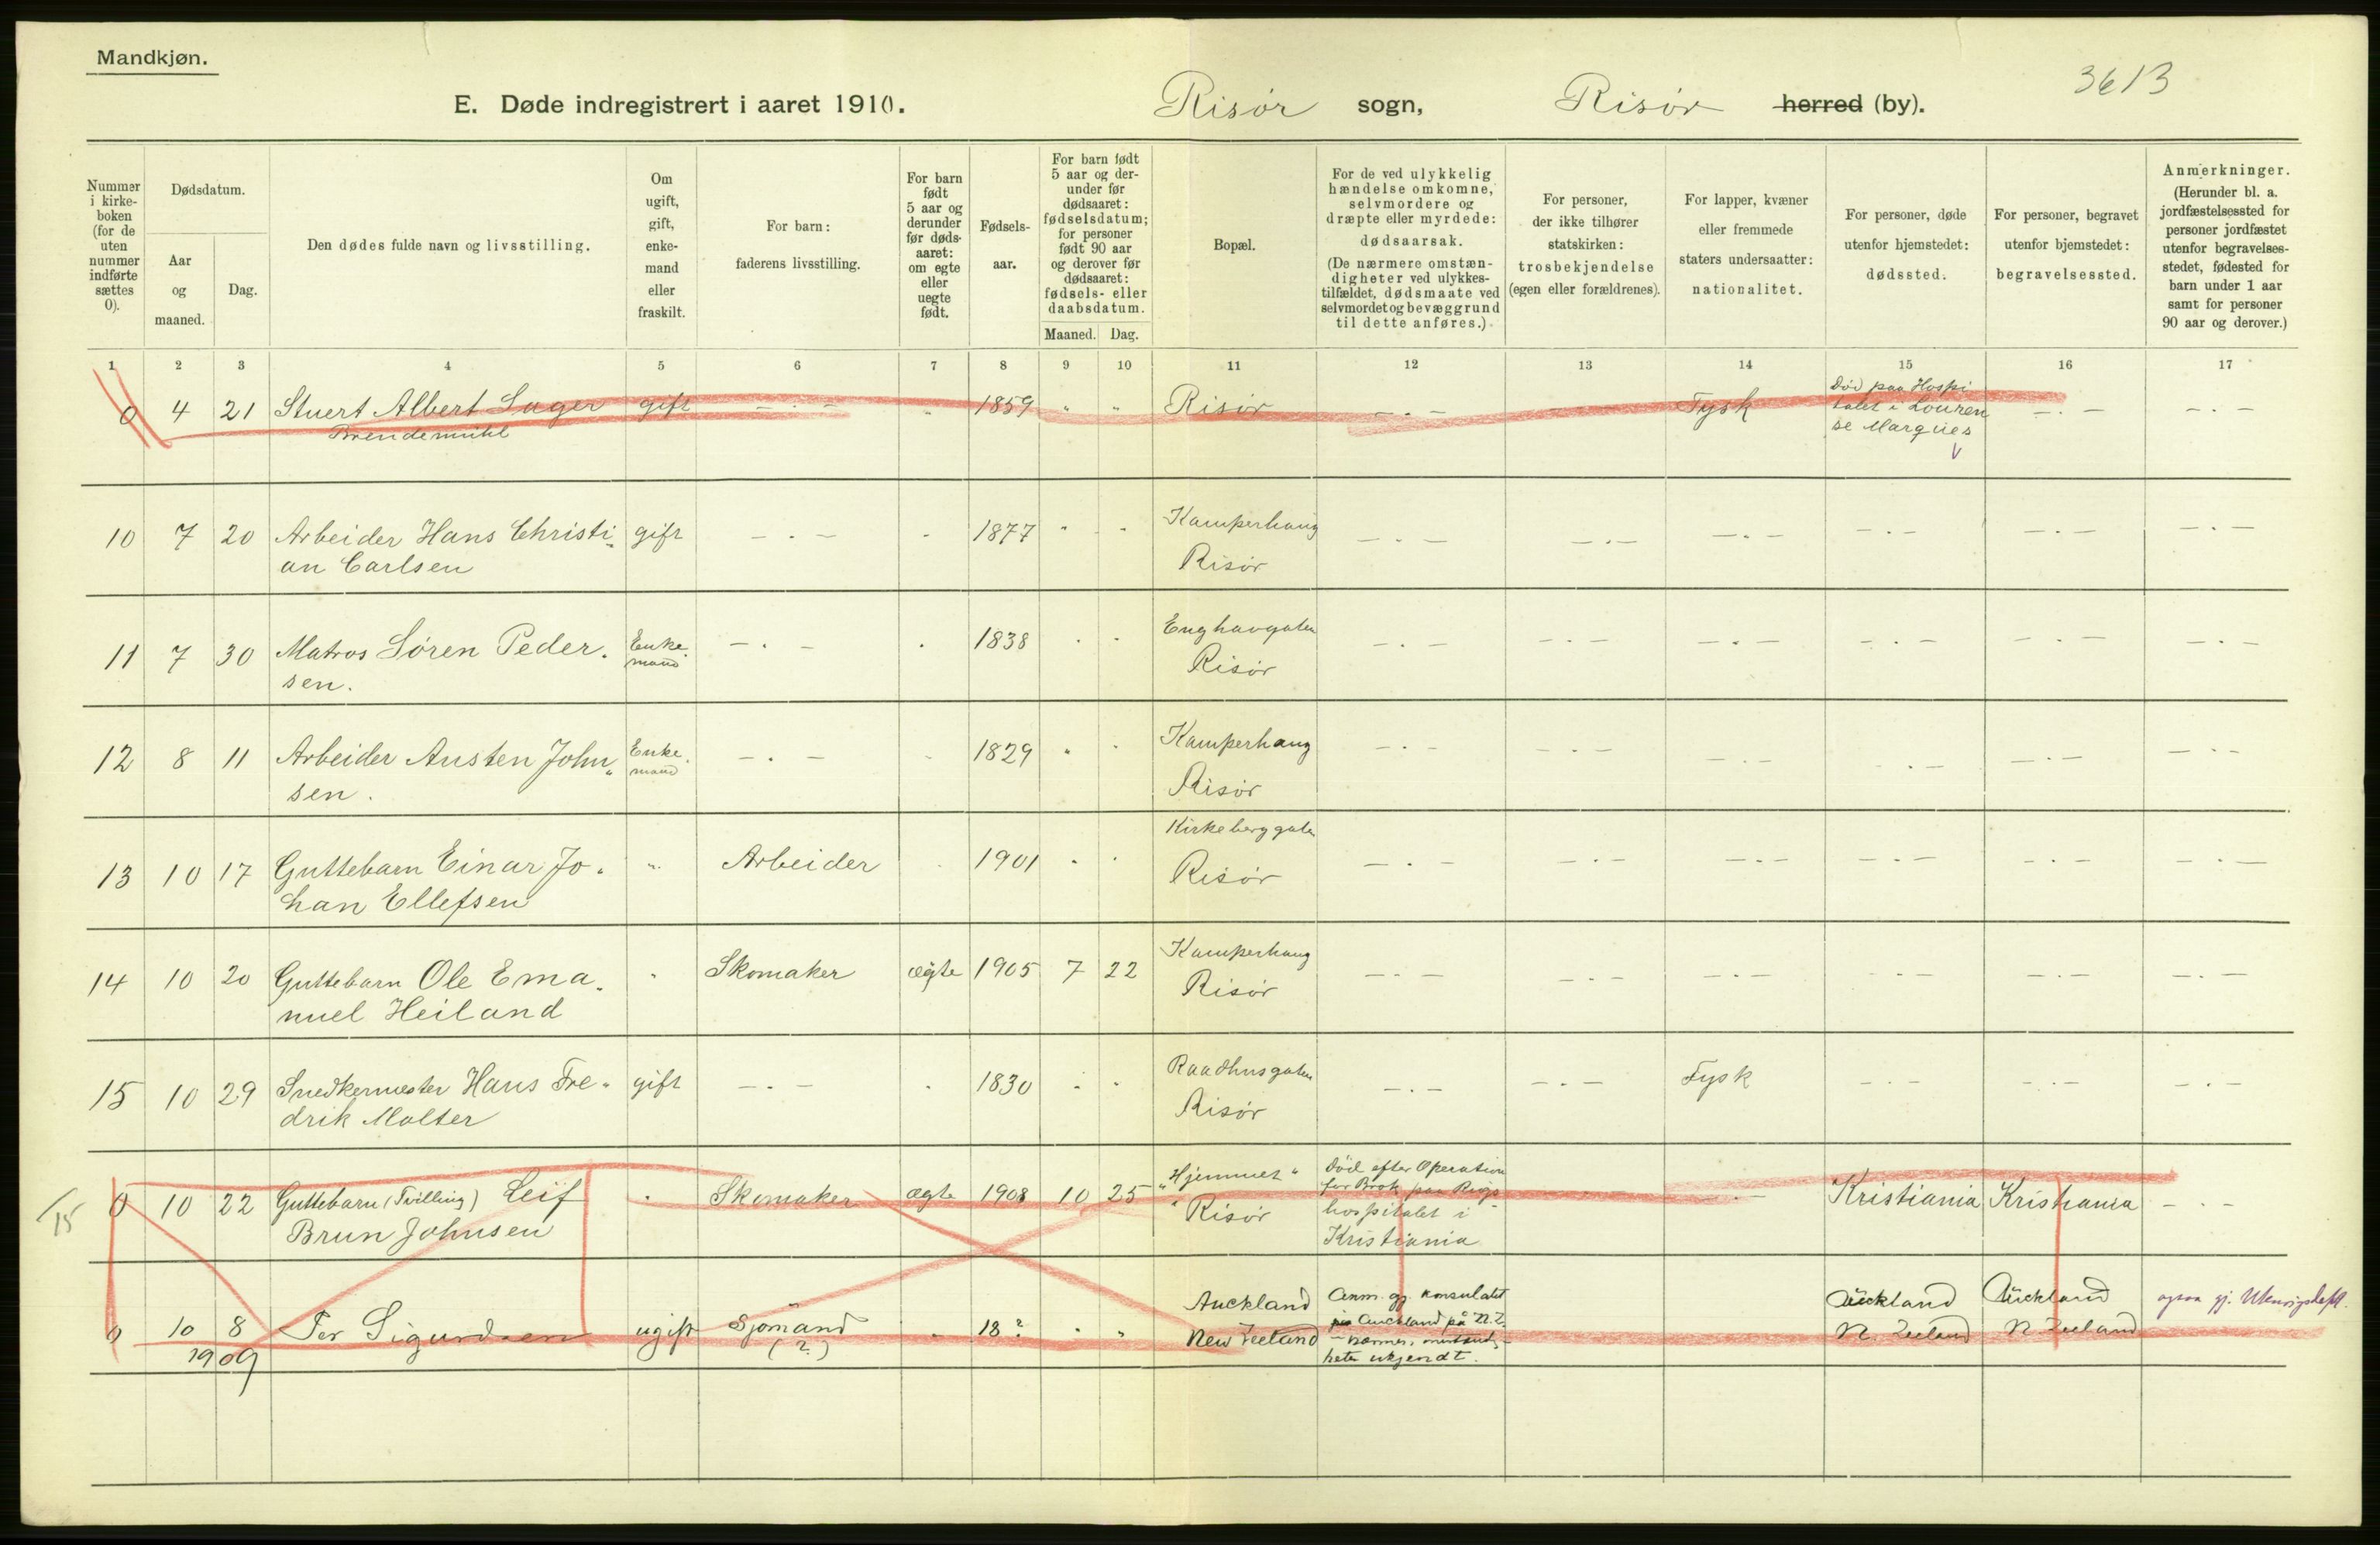 Mandkjøn.
3613
E. Døde indregistrert i aaret 1910.
Risør sogn,
Risør herred (by).
Nummer i kirke-boken (for de uten nummer indførte sættes 0).
Dødsdatum.
Aar og maaned.
Dag.
Den dødes fulde navn og livsstilling.
Om ugift, gift, enke-mand eller fraskilt.
For barn: faderens livsstilling.
For barn født 5 aar og derunder før døds-aaret: om egte eller uegte født.
Fødsels-aar.
For barn født 5 aar og der-under før dødsaaret: fødselsdatum; for personer født 90 aar og derover før dødsaaret: fødsels- eller daabsdatum.
Maaned. Dag.
Bopæl.
For de ved ulykkelig hændelse omkomne, selvmordere og dræpte eller myrdede: dødsaarsak. (De nærmere omstæn-digheter ved ulykkes-tilfældet, dødsmaate ved selvmordet og bevæggrund til dette anføres.)
For personer, der ikke tilhører statskirken: trosbekjendelse (egen eller forældrenes).
For lapper, kvæner eller fremmede staters undersaatter: nationalitet.
For personer, døde utenfor hjemstedet: dødssted.
For personer, begravet utenfor hjemstedet: begravelsessted.
Anmerkninger. (Herunder bl. a. jordfæstelsessted for personer jordfæstet utenfor begravelses-stedet, fødested for barn under 1 aar samt for personer 90 aar og derover.)
1 2 3 4 5 6 7 8 9 10 11 12 13 14 15 16 17
0 4 21 Stuert Albert Lager gift — . — " 1859 " " Risør — . — Tysk Død paa Hospi — . — — . —
Brendemühl talet i Louren
se Marques
10 7 20 Arbeider Hans Christi- gift — . — 1877 " Kamperhaug — . — — . — — . — — . — — . — — . —
an Carlsen Risør
11 7 30 Matros Søren Peder. Enke. — . — 1838 Enghavgaten — . — — . — — . — — . — — . — — . —
sen. mand Risør
12 8 11 Arbeider Austen John„ Enke. — . — 1829 " Kamperhaug — . — — . — — . — — . — — . — — . —
sen. mand Risør
13 10 17 Guttebarn Einar Jo. " Arbeider 1901 Kirkeberggaten — . — — . — — . — — . — — . — — . —
han Ellefsen Risør
14 10 20 Guttebarn Ole Ema. " Skomaker ægte 1905 7 22 Kamperhaug — . — — . — — . — — . — — . — — . —
nuel Heiland Risør
15 10 29 Snedkermester Hans Fre- gift — . — 1830 Raadhusgaten — . — — . — Tysk — . — — . — — . —
drik Molter Risør
15
0 10 22 Guttebarn (Tvilling) Leif Skomaker ægte 1908 10 25 "Hjemmet" Død efter Operation — . — Kristiania Kristiania — . —
Brun Johnsen Risør for Brok paa Rigs-
hospitalet i
Kristiania
0 10 8 Per Sigurdsen ugift Sjømand " 18? " " Auckland Anm. gj. konsulatet Auckland Auckland ogsaa gj.
1909 (?) New Zeeland Auckland på N. Z. N. Zeeland N. Zeeland
ukjendt.